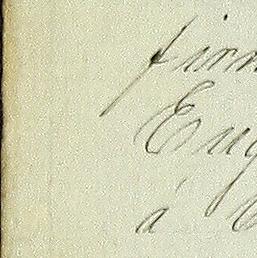 firm
Eug
á